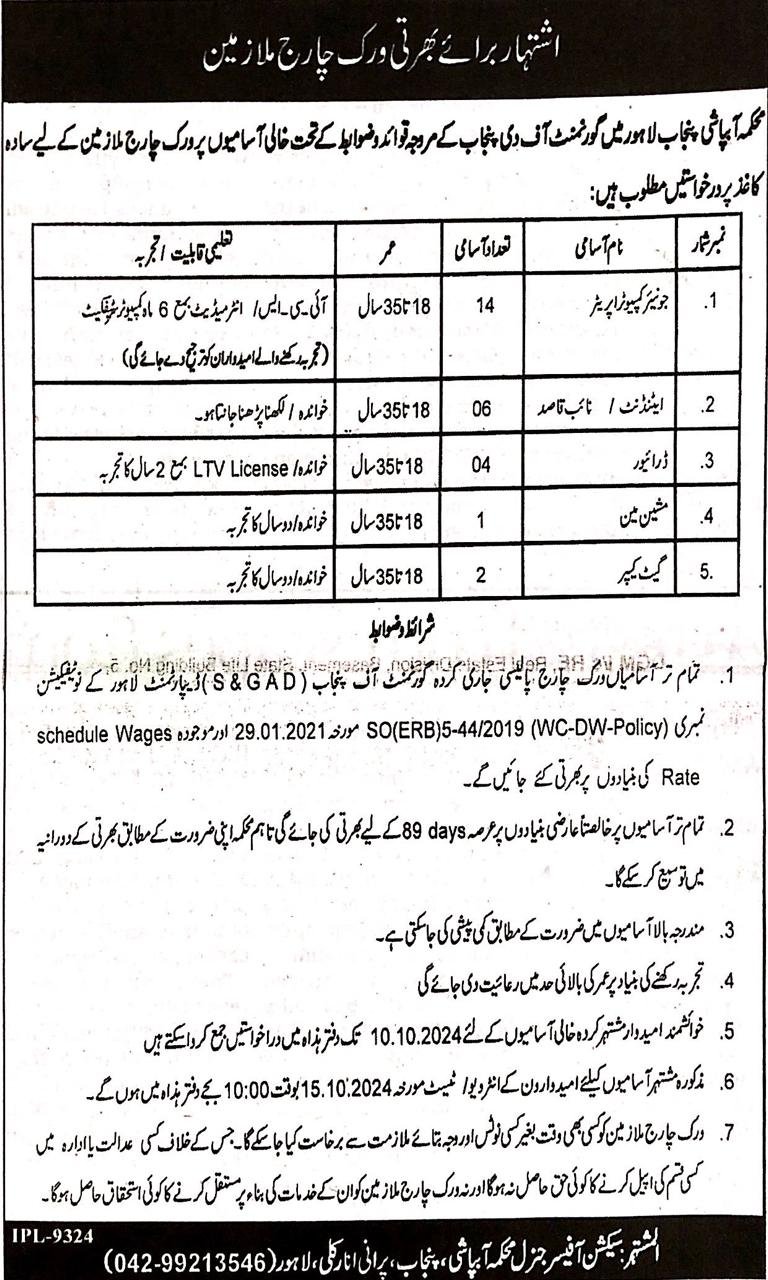 اشتہار برائے بھرتی ورک چارج ملازمین
محکمہ آبپاشی پنجاب لاہور میں گورنمنٹ آف دی پنجاب کے مروجہ قوائد و ضوابط کے تحت خالی آسامیوں پر ورک چارج ملازمین کے لیے سادہ
کاغذ پر درخواستیں مطلوب ہیں:
نمبر شمار نام آسامی تعداد آسامی عمر تعلیمی قابلیت / تجربہ
1. جونیئر کمپیوٹر اپریٹر 14 18 تا 35 سال آئی۔سی۔ایس / انٹرمیڈیٹ بمع 6 ماہ کمپیوٹر سرٹیفکیٹ
(تجربہ رکھنے والے امیدواران کو ترجیح دے جائے گی)
2. اٹینڈنٹ / نائب قاصد 06 18 تا 35 سال خواندہ / لکھنا پڑھنا جانتا ہو۔
3. ڈرائیور 04 18 تا 35 سال خواندہ / LTV License بمع 2 سال کا تجربہ
4. مشین مین 1 18 تا 35 سال خواندہ / دو سال کا تجربہ
5. گیٹ کیپر 2 18 تا 35 سال خواندہ / دو سال کا تجربہ
شرائط و ضوابط
1. تمام تر آسامیاں ورک چارج پالیسی جاری کردہ گورنمنٹ آف پنجاب (S & GAD) ڈیپارٹمنٹ لاہور کے نوٹیفکیشن
نمبری SO(ERB)5-44/2019 (WC-DW-Policy) مورخہ 29.01.2021 اور موجودہ schedule Wages
Rate کی بنیادوں پر بھرتی کئے جائیں گے۔
2. تمام تر آسامیوں پر خالصتاً عارضی بنیادوں پر عرصہ 89 days کے لیے بھرتی کی جائے گی تاہم محکمہ اپنی ضرورت کے مطابق بھرتی کے دورانیہ
میں توسیع کر سکے گا۔
3. مندرجہ بالا آسامیوں میں ضرورت کے مطابق کمی پیشی کی جا سکتی ہے۔
4. تجربہ رکھنے کی بنیاد پر عمر کی بالائی حد میں رعائیت دی جائے گی
5. خواہشمند امیدوار مشتہر کردہ خالی آسامیوں کے لئے 10.10.2024 تک دفتر ہذاہ میں دراخواستیں جمع کروا سکتے ہیں
6. مذکورہ مشتہر آسامیوں کیلئے امیدوارون کے انٹرویو / ٹیسٹ مورخہ 15.10.2024 بوقت 10:00 بجے دفتر ہذاہ میں ہوں گے۔
7. ورک چارج ملازمین کو کسی بھی وقت بغیر کسی نوٹس اور وجہ بتائے ملازمت سے برخاست کیا جا سکے گا۔ جس کے خلاف کسی عدالت یا ادارہ میں
کسی قسم کی اپیل کرنے کا کوئی حق حاصل نہ ہوگا اور نہ ورک چارج ملازمین کو ان کے خدمات کی بناء پر مستقل کرنے کا کوئی استحقاق حاصل ہوگا۔
IPL-9324
المشتہر: سیکشن آفیسر جنرل محکمہ آبپاشی، پنجاب، پرانی انارکلی، لاہور (042-99213546)